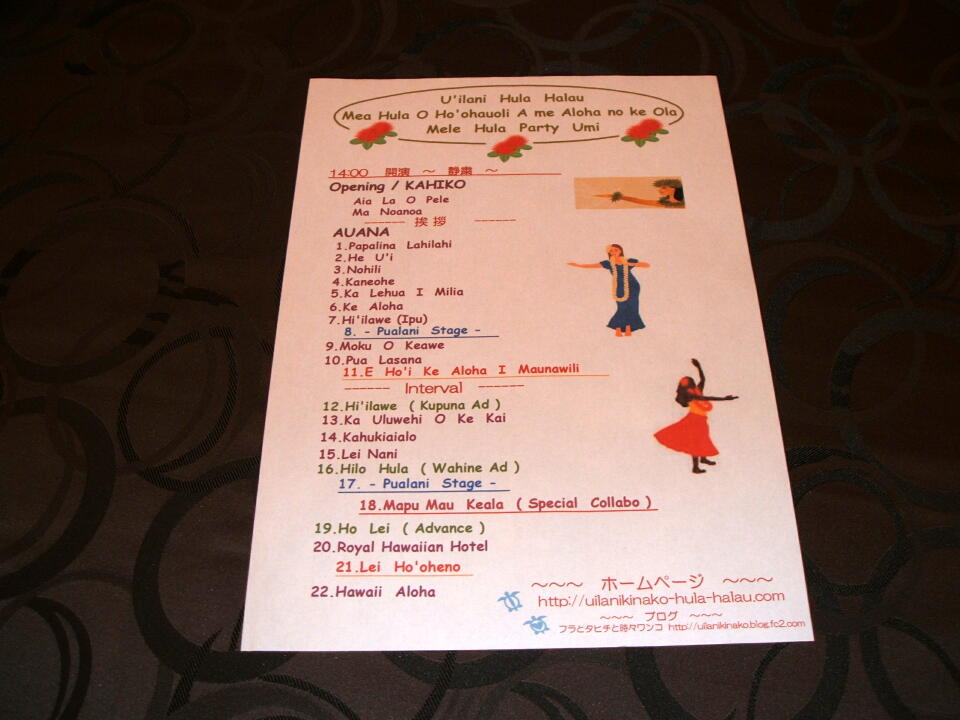 U'ilani Hula Halau
Mea Hula O Ho'ohauoli A me Aloha no ke Ola
Mele Hula Party Umi
14:00 開演 ～ 静粛 ～
Opening / KAHIKO
Aia La O Pele
Ma Noanoa
------ 挨拶 ------
AUANA
1.Papalina Lahilahi
2.He U'i
3.Nohili
4.Kaneohe
5.Ka Lehua I Milia
6.Ke Aloha
7.Hi'ilawe (Ipu)
8. - Pualani Stage -
9.Moku O Keawe
10.Pua Lasana
11.E Ho'i Ke Aloha I Maunawili
------ Interval ------
12.Hi'ilawe ( Kupuna Ad )
13.Ka Uluwehi O Ke Kai
14.Kahukiaialo
15.Lei Nani
16.Hilo Hula ( Wahine Ad )
17. - Pualani Stage -
18.Mapu Mau Keala ( Special Collabo )
19.Ho Lei ( Advance )
20.Royal Hawaiian Hotel
21.Lei Ho'oheno
22.Hawaii Aloha
～～～ ホームページ ～～～
http://uilanikinako-hula-halau.com
～～～ ブログ ～～～
フラとタヒチと時々ワンコ http://uilanikinako.blog.fc2.com